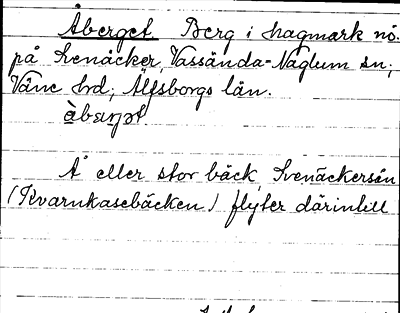 Åberget Berg i hagmark nö.
på Svenäcker, Vassända-Naglum sn,
Väne hd, Älfsborgs län.
Å eller stor bäck, Svenäckersån
(Kvarnkasebäcken) flyter därintill